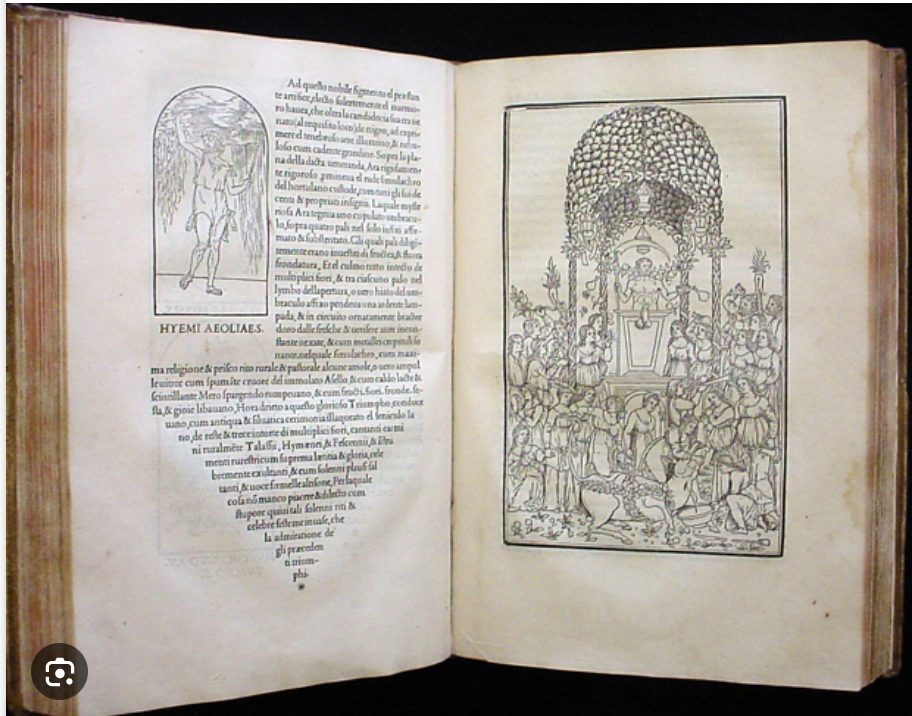 HYEMI AEOLIAE.S.
Ad questo nobile figmento el præstan
te artifice, electo solertemente el marmo-
ro hauea, che oltra la candidecia sua era ue
nato (al requisito loco) de nigro, ad expri-
mere el tenebroso aere illumino, & nebu-
loso cum cadente grandine. Sopra la pla-
na della dicta ueneranda, Ara rigidamen-
te rigoroso, promineua el rude simulachro
del hortulano custode, cum tutti gli sui de
centi & propriati insignii. Laquale myste
riosa Ara tegeua uno cupulato umbracu-
lo, sopra quatro pali nel solo infixi affir-
mato & substentato. Gli quali pali diligen-
temente erano inuestiti di fructea, & florea
frondatura, Et el culmo tutto intecto de
multiplici fiori, & tra ciascuno palo nel
lymbo dellapertura, o uero hiato del um-
braculo affixo pendeua una ardente lam-
pada, & in circuito ornatamente bractee
doro dalle fresche & uerifere aure incon-
stante uexate, & cum metallei crepituli so
nante. nelquale simulachro, cum maxi-
ma religione & prisco rito rurale & pastorale alcune amole, o uero ampul
le uitree cum spumãte cruore del immolato Asello, & cum caldo lacte &
scintillante Mero spargendo rumpeuano, & cum fructi. fiori. fronde. fe-
sta, & gioie libauano, Hora drieto a questo glorioso Triumpho, conduce
uano, cum antiqua & siluatica cerimonia illaqueato el seniculo Ia
no, de reste & trece intorte di multiplici fiori, cantanti carmi
ni ruralmẽte Talassii, Hymænei, & Fescennii, & istru
menti rurestri cum suprema lætitia & gloria, cele
bremente exultanti, & cum solenni plausi sal
tanti, & uoce femelle altisone, Per laquale
cosa nõ manco piacere & dilecto cum
stupore quiui tali solenni riti &
celebre feste me inuase, che
la admiratione de
gli præceden
ti trium-
phi.
*